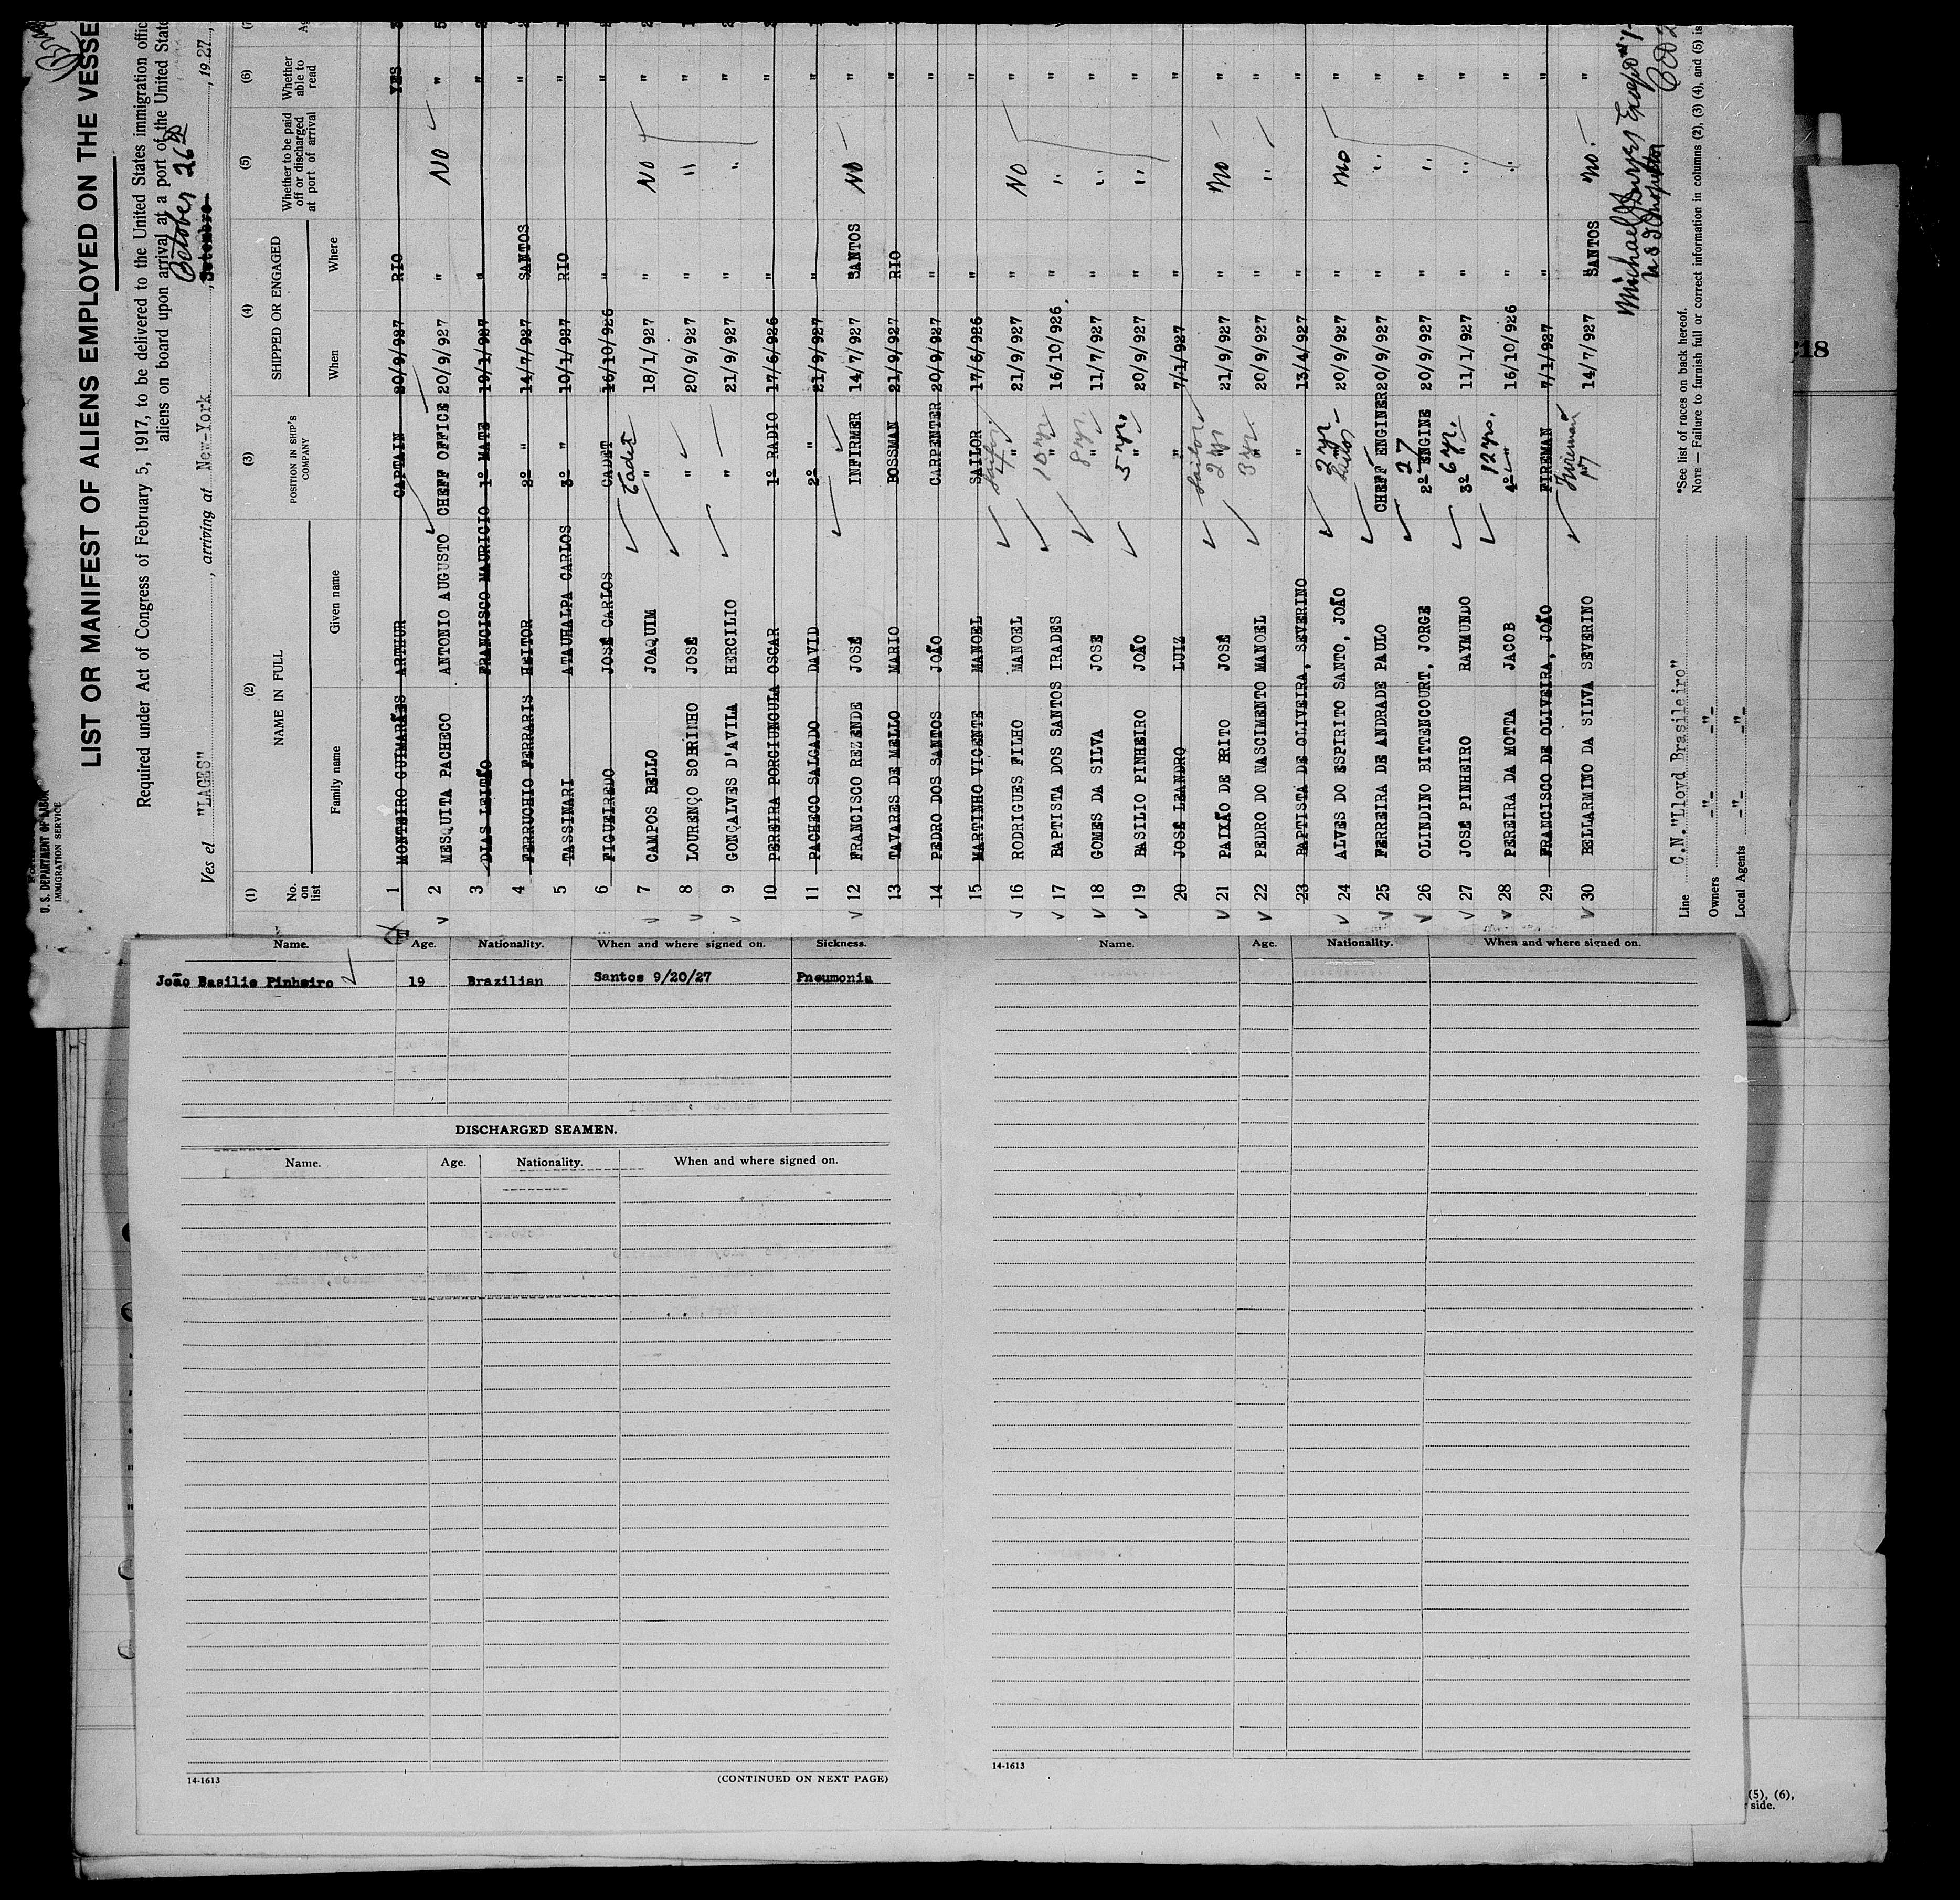 U. S. DEPARTMENT OF LABOR
IMMIGRATION SERVICE
LIST OR MANIFEST OF ALIENS EMPLOYED ON THE VESSE
Required under Act of Congress of February 5, 1917, to be delivered to the United States immigration offic
aliens on board upon arrival at a port of the United State
October 26th
Ves el "LAGES", arriving at New-York, Setembro, 1927,
(1) (2) (3) (4) (5) (6) (7)
No. on list NAME IN FULL POSITION IN SHIP'S COMPANY SHIPPED OR ENGAGED Whether to be paid off or discharged at port of arrival Whether able to read Ag
Family name Given name When Where
1 MONTEIRO GUIMARÃES ARTHUR CAPTAIN 20/9/927 RIO YES
2 MESQUITA PACHECO ANTONIO AUGUSTO CHEFF OFFICE 20/9/927 " No "
3 DIAS LEITÃO FRANCISCO MAURICIO 1º MATE 19/1/927 " "
4 FERRUCHIO FERRARIS HEITOR 2º " 14/7/927 SANTOS "
5 TASSINARI ATAUHALPA CARLOS 3º " 10/1/927 RIO "
6 FIGUEIREDO JOSÉ CARLOS CADET 16/10/926 " "
7 CAMPOS BELLO JOAQUIM " Cadet 18/1/927 " No "
8 LOURENÇO SOBRINHO JOSÉ " 20/9/927 " " "
9 GONÇALVES D'AVILA HERCILIO " 21/9/927 " " "
10 PEREIRA PORCIUNCULA OSCAR 1º RADIO 17/6/926 " "
11 PACHECO SALGADO DAVID 2º " 21/9/927 " "
12 FRANCISCO REZENDE JOSÉ INFIRMER 14/7/927 SANTOS No "
13 TAVARES DE MELLO MARIO BOSSMAN 21/9/927 RIO "
14 PEDRO DOS SANTOS JOÃO CARPENTER 20/9/927 " "
15 MARTINHO VICENTE MANOEL SAILOR 17/6/926 " "
16 RODRIGUES FILHO MANOEL " 21/9/927 " No "
17 BAPTISTA DOS SANTOS IRADES " 10 yr 16/10/926 " " "
18 GOMES DA SILVA JOSE " 8 yr. 11/7/927 " " "
19 BASILIO PINHEIRO JOÃO " 5 yr. 20/9/927 " " "
20 JOSÉ LEANDRO LUIZ " 7/1/927 " "
21 PAIXÃO DE BRITO JOSÉ " Sailor 2 yr 21/9/927 " No "
22 PEDRO DO NASCIMENTO MANOEL " 3 yr. 20/9/927 " " "
23 BAPTISTA DE OLIVEIRA, SEVERINO " 13/4/927 " "
24 ALVES DO ESPIRITO SANTO, JOÃO " 2 yr 20/9/927 " No "
25 FERREIRA DE ANDRADE PAULO CHEFF ENGINER 20/9/927 " " "
26 OLINDINO BITTENCOURT, JORGE 2º ENGINE 27 20/9/927 " " "
27 JOSÉ PINHEIRO RAYMUNDO 3º " 6 yr. 11/1/927 " " "
28 PEREIRA DA MOTTA JACOB 4º " 12 yrs. 16/10/926 " " "
29 FRANCISCO DE OLIVEIRA, JOÃO FIREMAN 7/1/927 " "
30 BELLARMINO DA SILVA SEVERINO " Fireman 14/7/927 SANTOS No. "
Line C.N."Lloyd Brasileiro"
Owners -"- -"-
Local Agents -"- -"-
*See list of races on back hereof.
NOTE — Failure to furnish full or correct information in columns (2), (3) (4), and (5) is
Name. Age. Nationality. When and where signed on. Sickness.
João Basilio Pinheiro 19 Brazilian Santos 9/20/27 Pneumonia
DISCHARGED SEAMEN.
Name. Age. Nationality. When and where signed on.
14-1613
(CONTINUED ON NEXT PAGE)
Name. Age. Nationality. When and where signed on.
14-1613
(5), (6),
side.